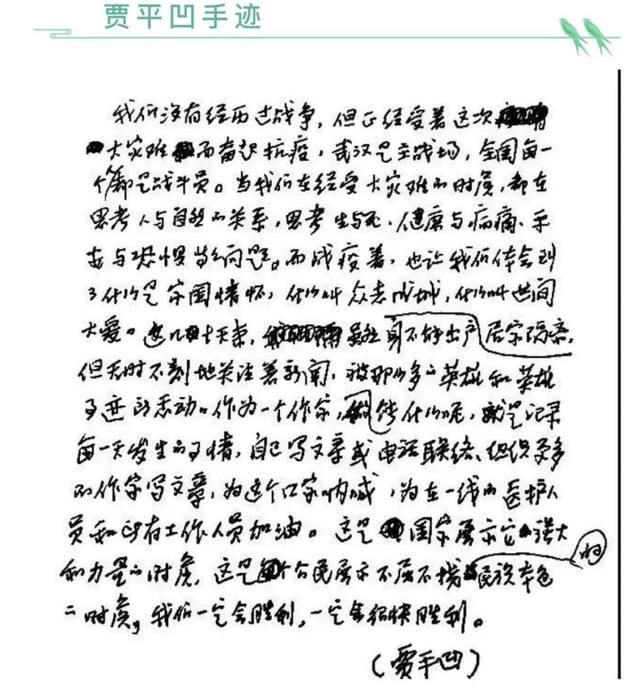 贾平凹手迹
我们没有经历过战争，但正经受着这次
大灾难而奋起抗疫，武汉是主战场，全国每一
个都是战斗员。当我们在经受大灾难的时候，都在
思考人与自然的关系，思考生与死、健康与病痛、平
安与恐惧等问题。而战疫着，也让我们体会到
了什么是家国情怀，什么叫众志成城，什么叫世间
大爱。这几十天来，虽然身不能出户居家隔离，
但无时不刻地关注着新闻，被那么多的英雄和英雄
事迹所感动。作为一个作家，能做什么呢，就是记录
每一天发生的事情，自己写文章或电话联络、组织更多
的作家写文章，为这个国家呐喊，为在一线的医护人
员和所有工作人员加油。这是国家展示它强大
和力量的时候，这是个公民展示不屈不挠的民族本色
的时候，我们一定会胜利，一定会很快胜利。
（贾平凹）